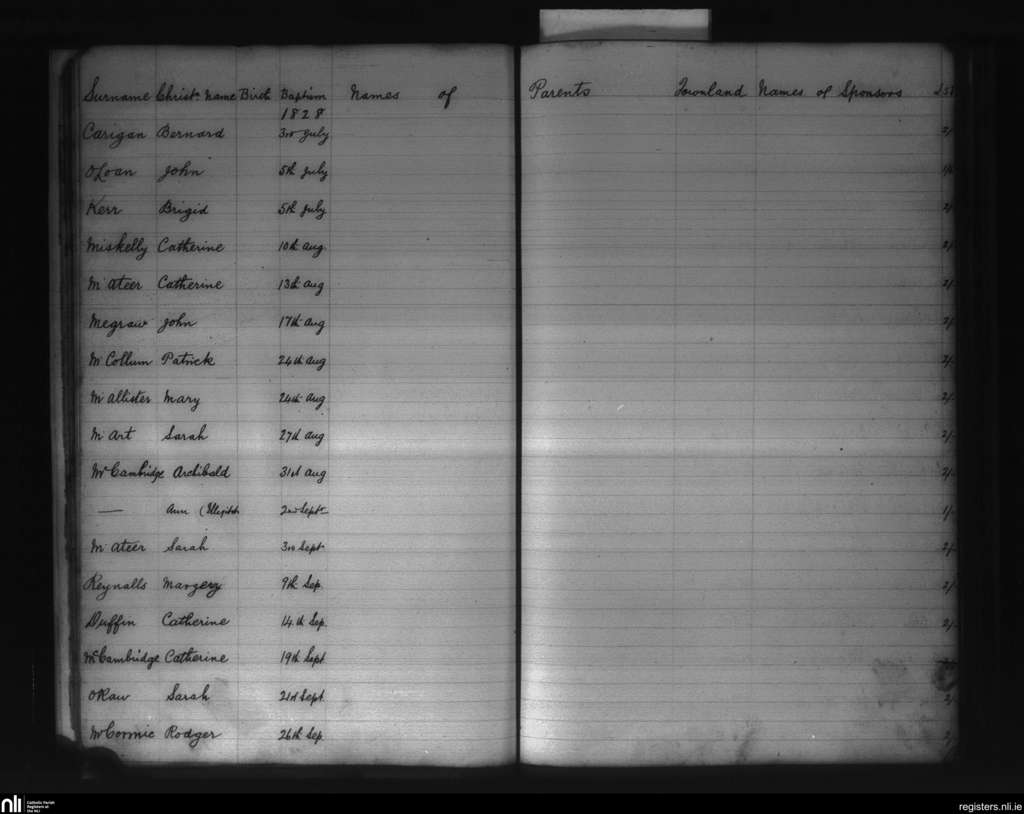 Surname Christn Name Birth Baptism Names of Parents Townland Names of Sponsors
1828
Carigan Bernard 3rd July 2/
O'Loan John 5th July
Kerr Brigid 5th July 2/
Miskelly Catherine 10th Aug. 2/
McAteer Catherine 13th Aug 2/
Megraw John 17th Aug 2/
McCollum Patrick 24th Aug 2/
McAllister Mary 24th Aug 2/
McArt Sarah 27th Aug 2/
McCambridge Archibald 31st Aug 2/
— Ann (Illegit 2nd Sept 1/
McAteer Sarah 3rd Sept 2/
Reynalls Margery 9th Sep. 2/
Duffin Catherine 14th Sep. 2/
McCambridge Catherine 19th Sept
O'Raw Sarah 21st Sept. 2/
McCormic Rodger 26th Sep. 2/
nli Catholic Parish Registers at the NLI
registers.nli.ie